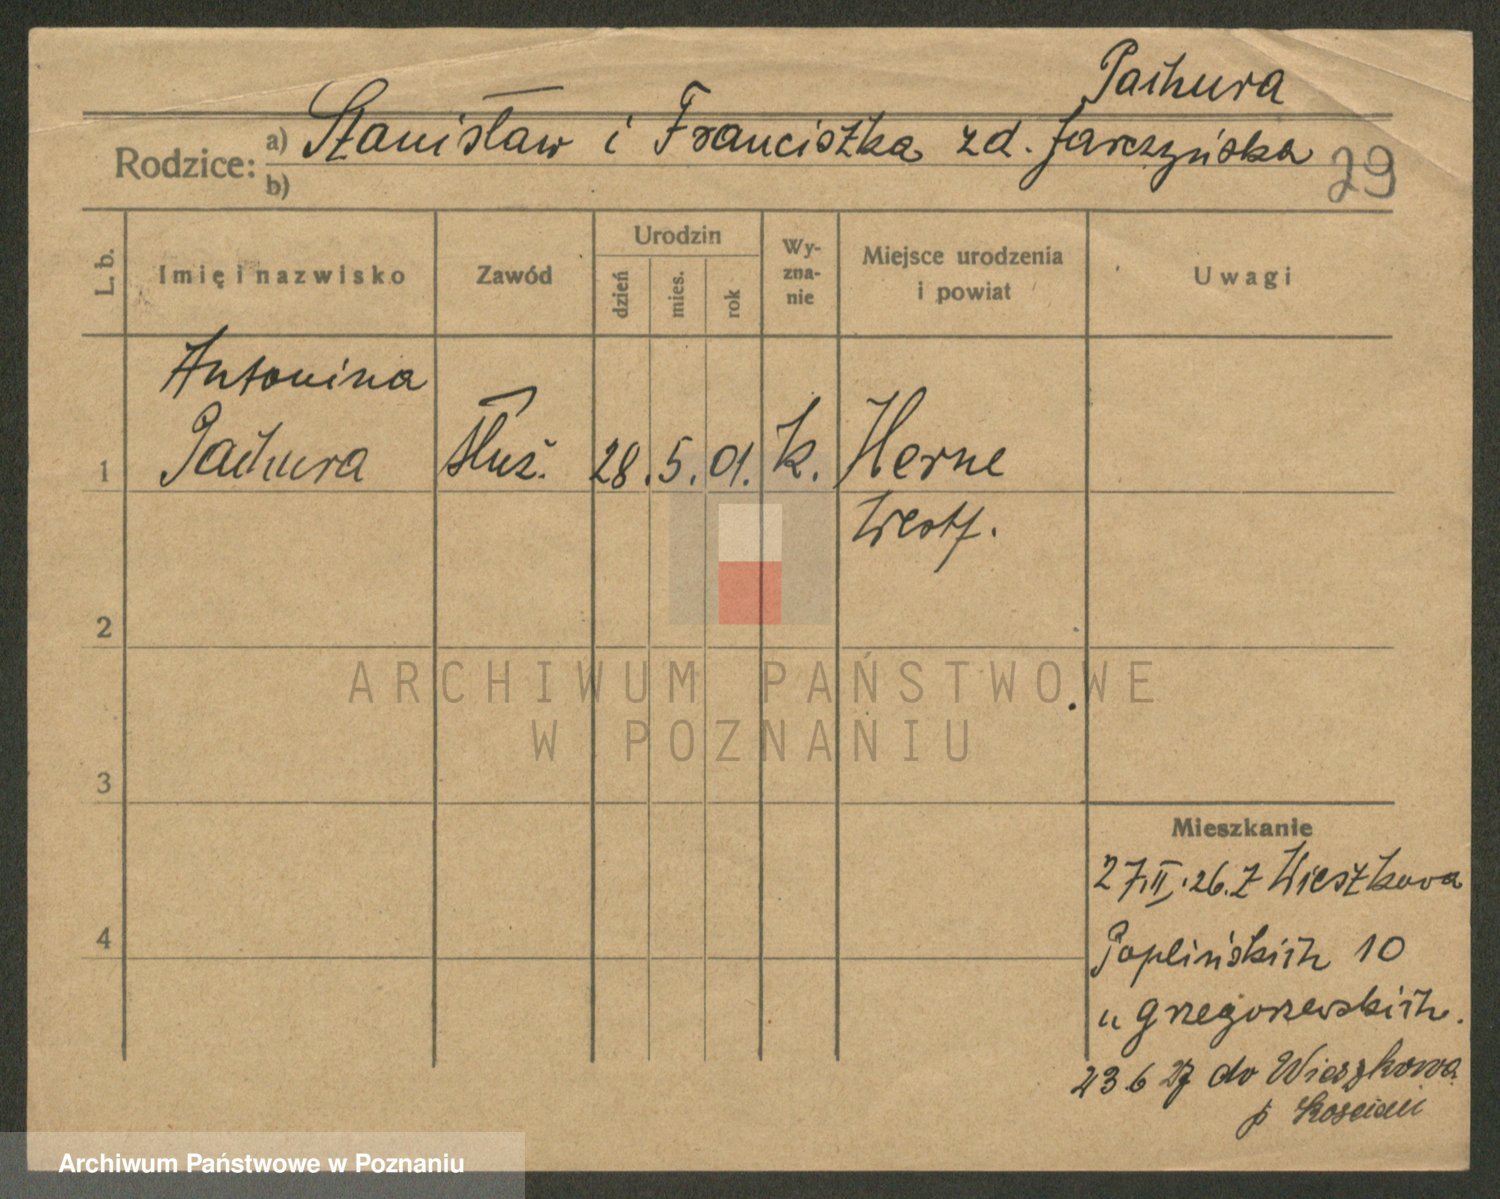 Pachura
Rodzice: a) Stanisław i Franciszka zd. Jarczyńska
b)
29
L. b.
Imię i nazwisko
Zawód
Urodzin
dzień
mies.
rok
Wy-
zna-
nie
Miejsce urodzenia
i powiat
Uwagi
Antonina
1 Pachura służ. 28. 5. 01. k. Herne
Westf.
2
3
4
Mieszkanie
27.II.26. z Wieszkowa
Poplińskich 10
u Grzegorzewskich.
23 6 27 do Wieszkowa
p Kościan
ARCHIWUM PAŃSTWOWE
W POZNANIU
Archiwum Państwowe w Poznaniu